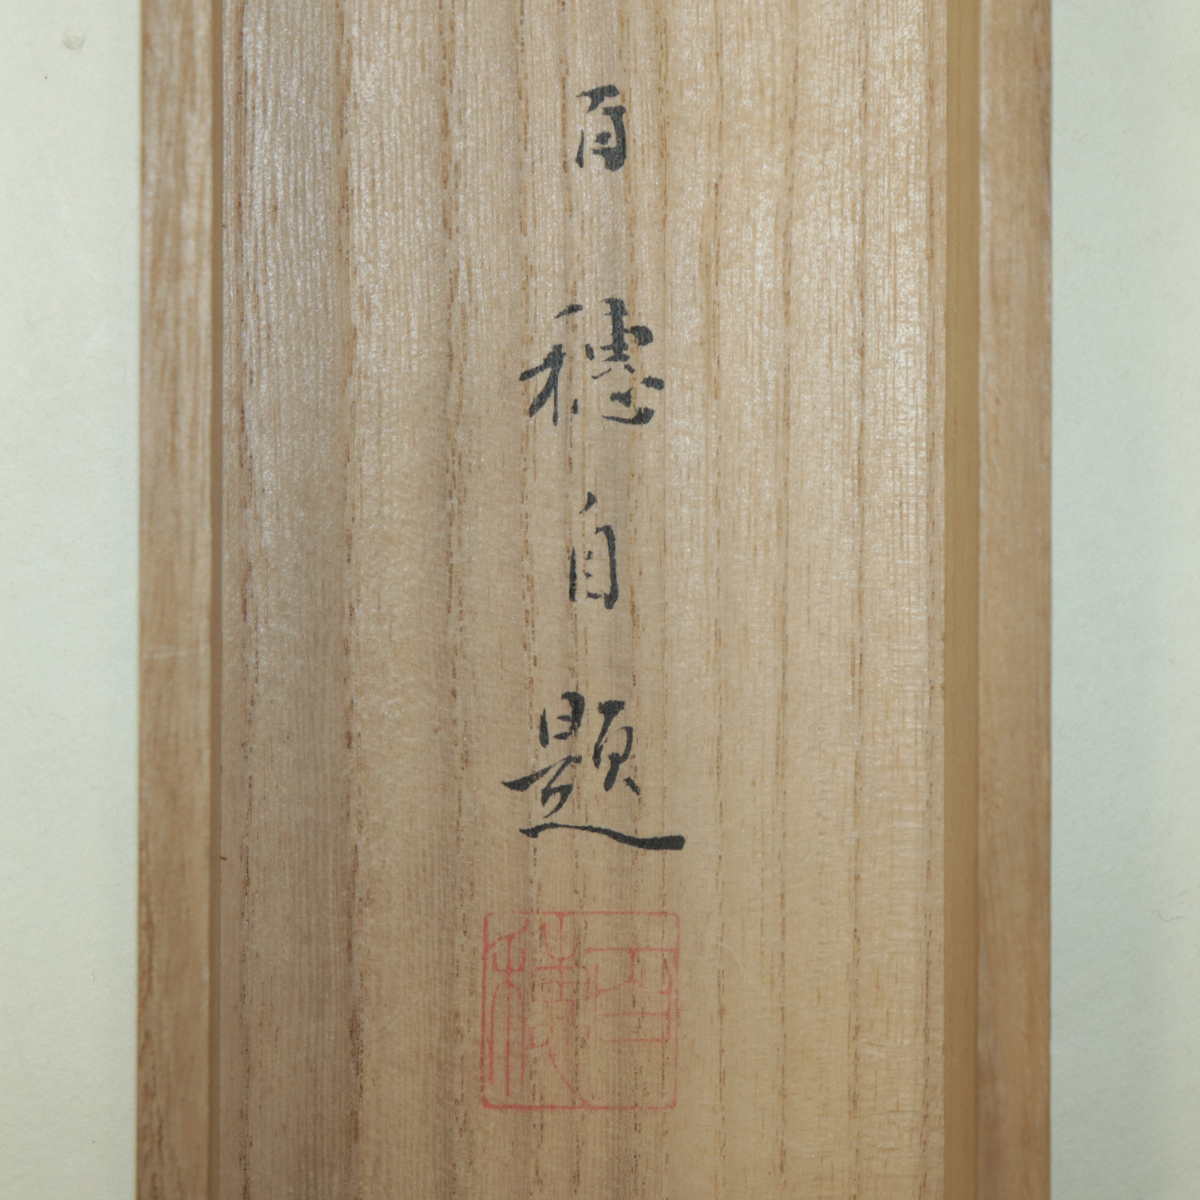 百穂自題
百穂